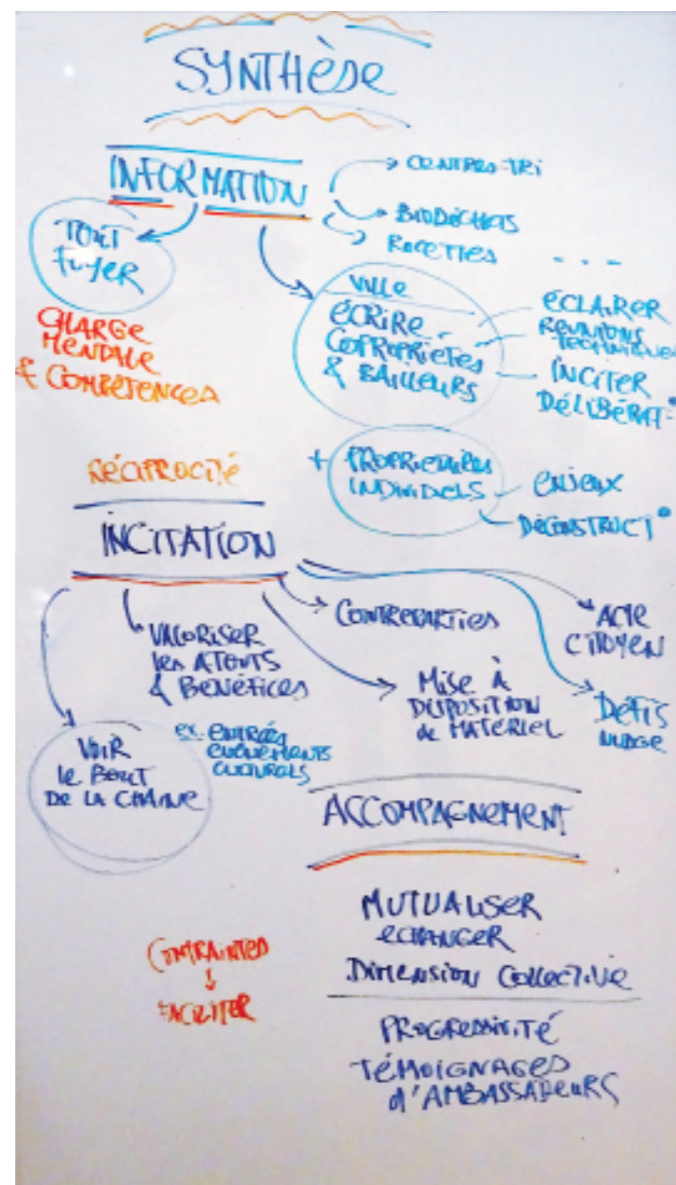 SYNTHÈSE
INFORMATION
→ CENTRES TRI
→ BIODÉCHETS
→ RECETTES ...
TOUT
FOYER
CHARGE
MENTALE
& COMPÉTENCES
VILLE
ÉCRIRE
COPROPRIÉTÉS
& BAILLEURS
ÉCLAIRER
RÉUNIONS
TECHNIQUES
INCITER
DÉLIBÉRAT°
+ PROPRIÉTAIRES
INDIVIDUELS
ENJEUX
DÉCONSTRUCT°
RÉCIPROCITÉ
INCITATION
VALORISER
les ATOUTS
& BÉNÉFICES
CONTREPARTIES
ACTE
CITOYEN
Mise à
DISPOSITION
de MATÉRIEL
DÉFIS
NUDGE
VOIR
le BOUT
DE LA CHAÎNE
ex. ENTRÉES
ÉVÉNEMENTS
CULTURELS
ACCOMPAGNEMENT
MUTUALISER
ECHANGER
DIMENSION COLLECTIVE
CONTRAINTES
↓
FACILITER
PROGRESSIVITÉ
TÉMOIGNAGES
d'AMBASSADEURS